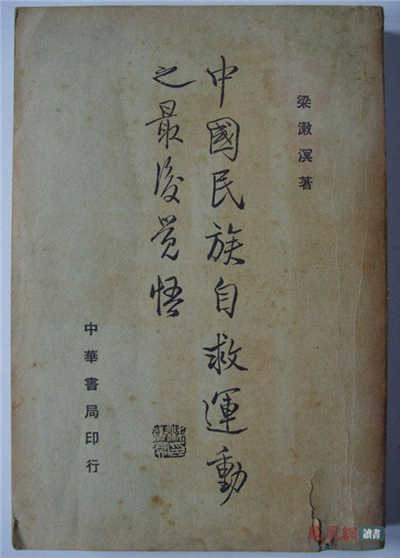 梁漱溟著
中國民族自救運動
之最後覺悟
中華書局印行
鳳凰網
讀書